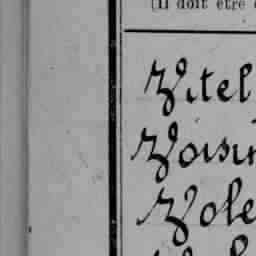 (Il doit être
Vitel
Voisin
Vole